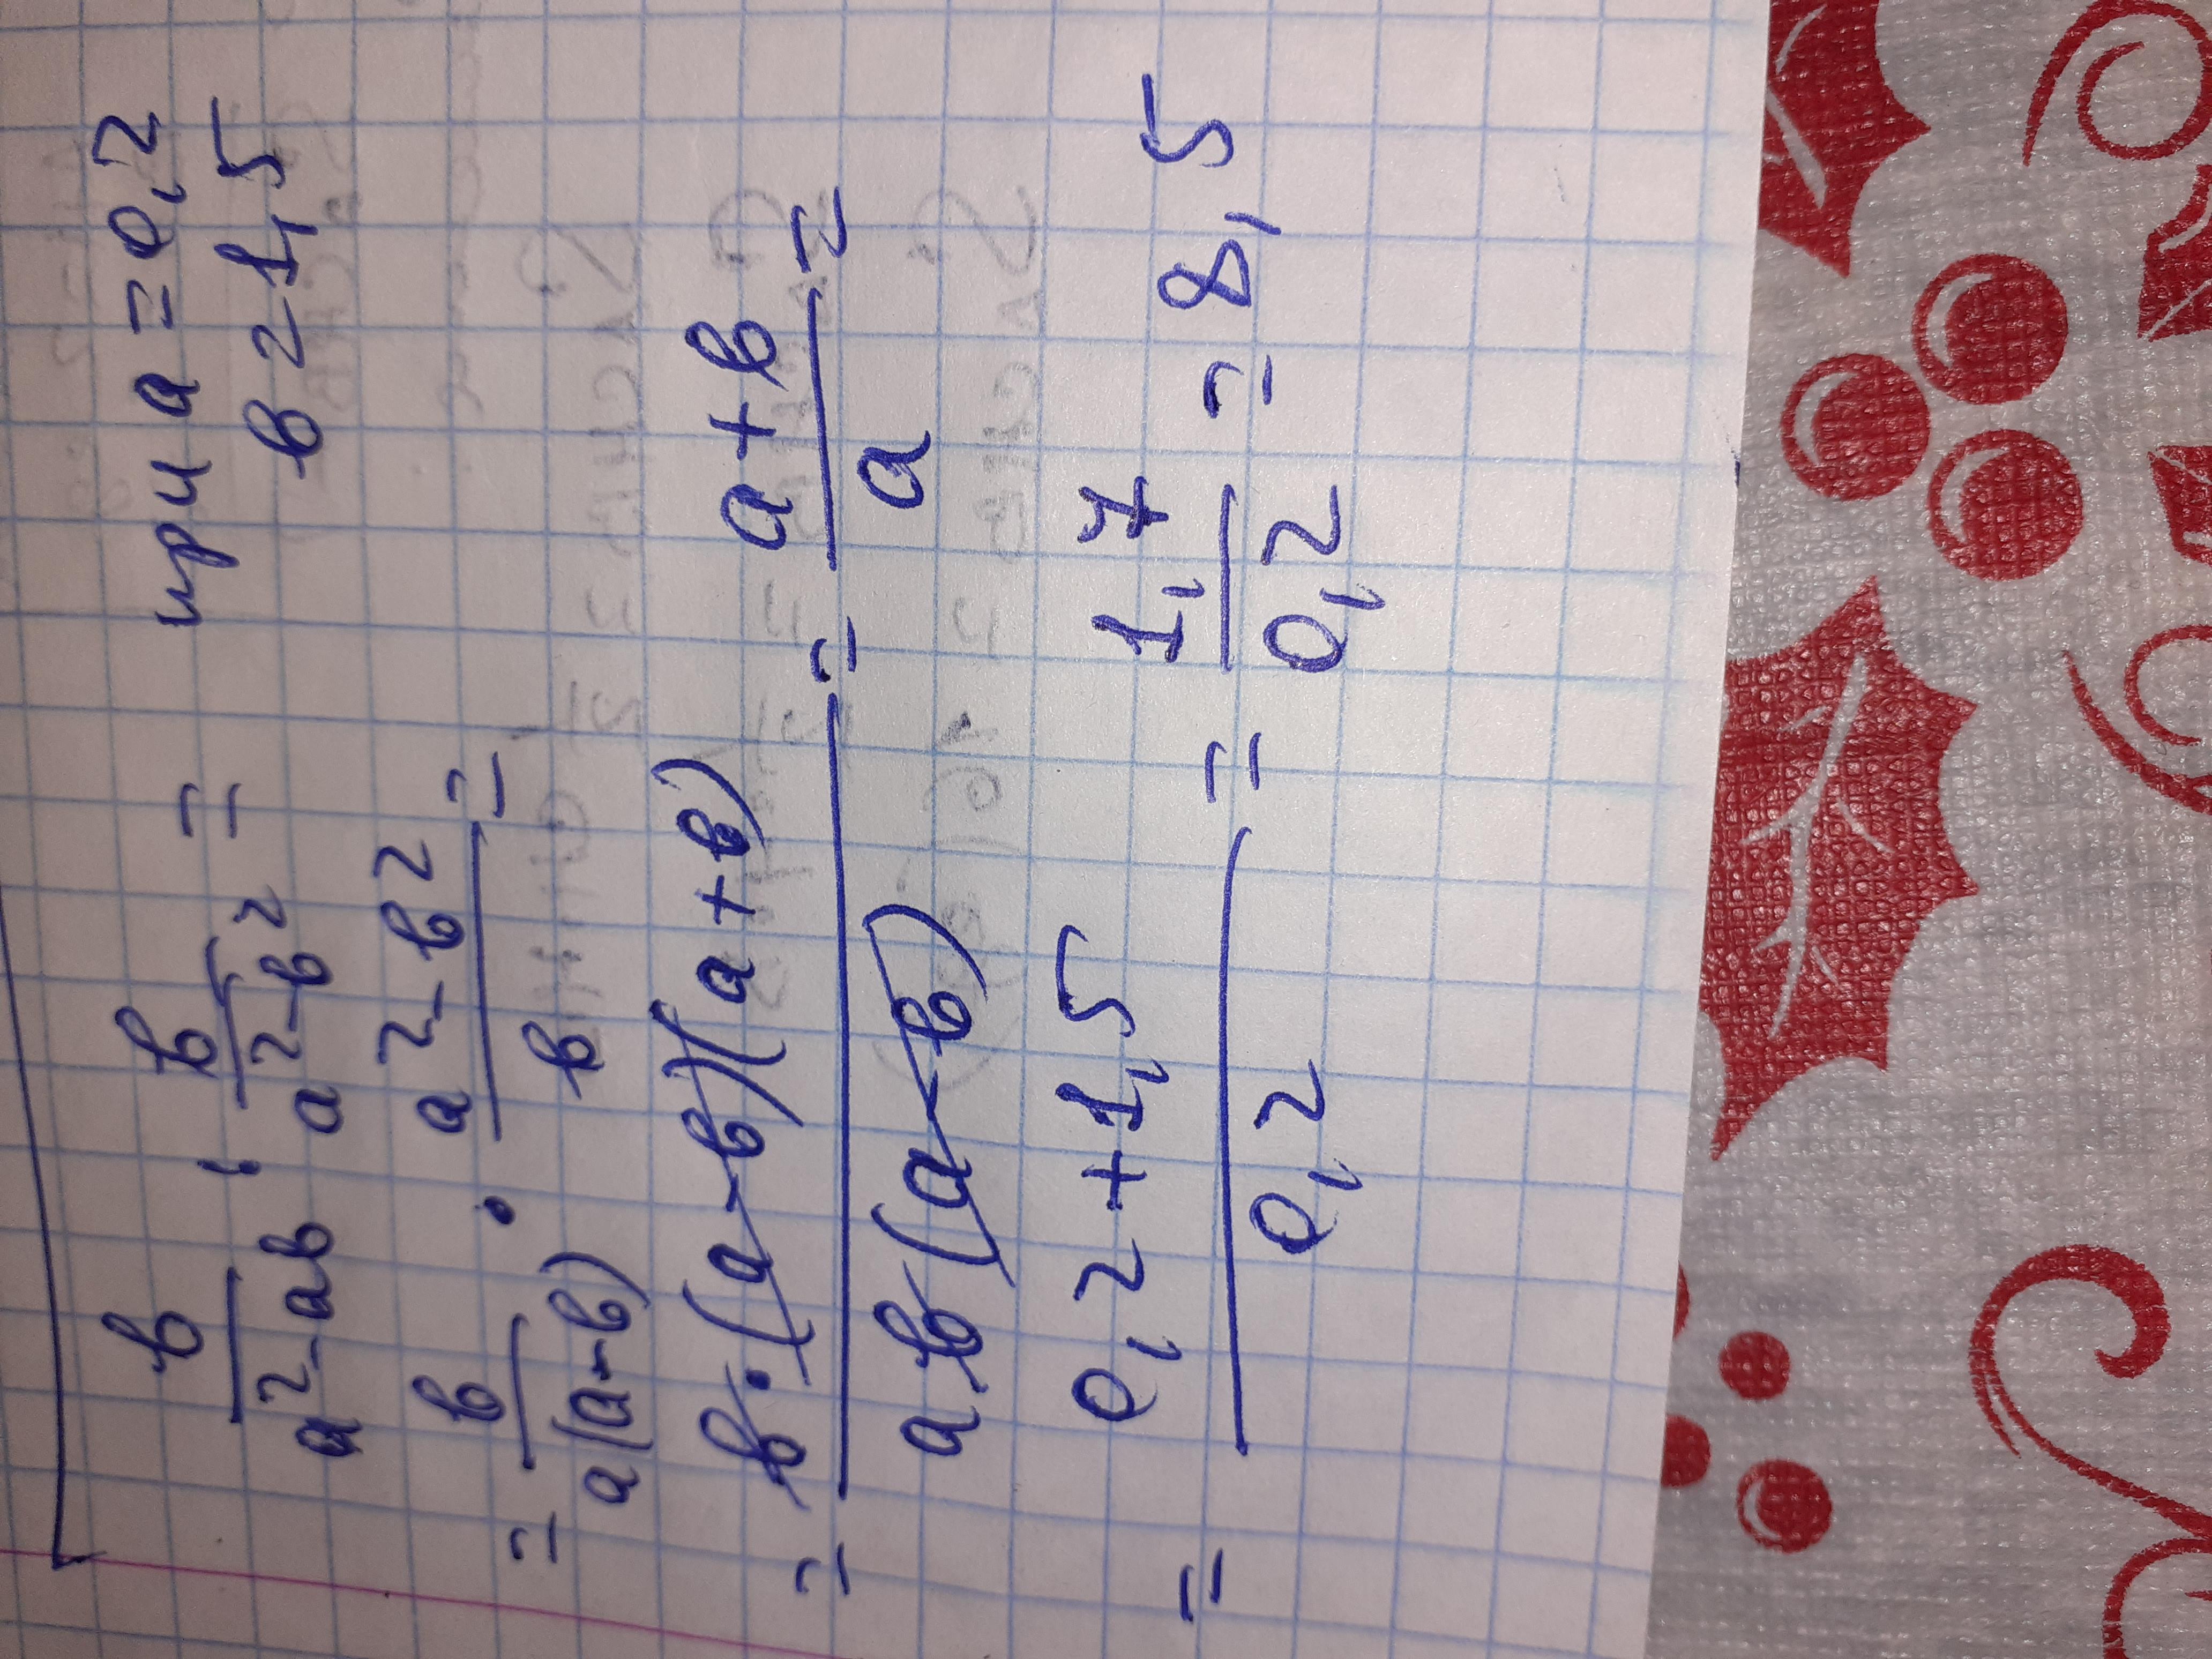 в/(a²-aв) : в/(a²-в²) = при a = 0,2
в = 1,5
= в/(a(a-в)) · (a²-в²)/в =
= (в·(a-в)(a+в))/(a·в(a-в)) = (a+в)/a =
= (0,2+1,5)/0,2 = 1,7/0,2 = 8,5